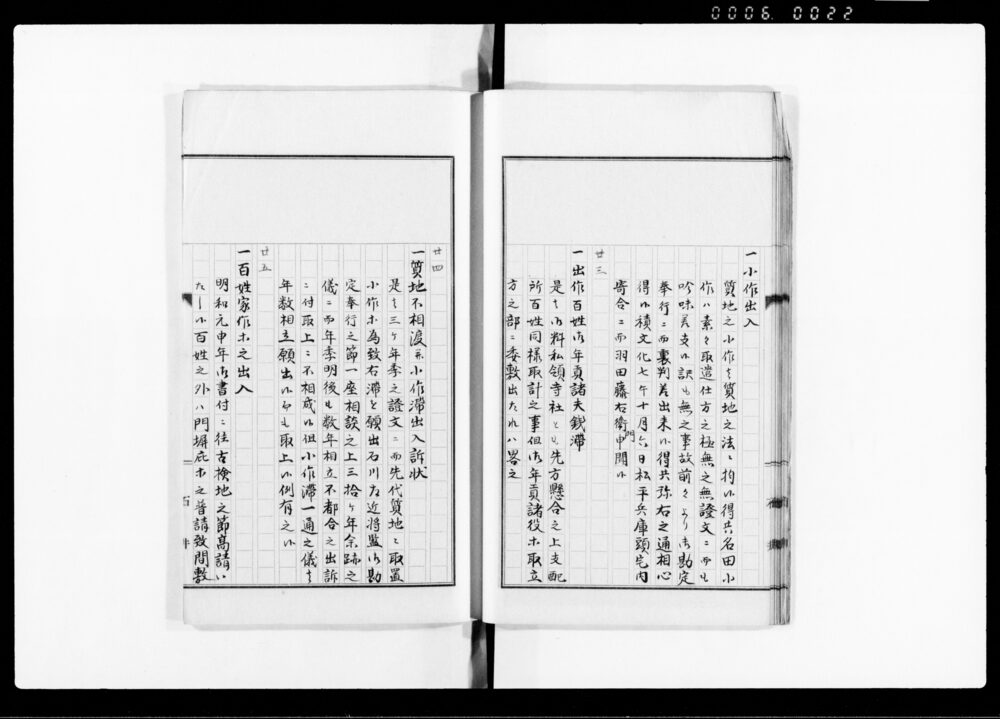 0006. 0022
一小作出入
質地之小作者質地之法ニ拘ハ得共名田小
作ハ素々取遣仕方之極無之無證文ニ而も
吟味差支ハ訳も無之事故前々より御勘定
奉行ニ而裏判差出来ハ得共弥右之通相心
得ハ積文化七午十月六日松平兵庫頭宅内
寄合ニ而羽田藤右衛門申聞ハ
廿三
一出作百姓御年貢諸夫銭滞
是者御料私領寺社とも先方懸合之上支配
所百姓同様取計之事但御年貢諸役ホ取立
方之部ニ委敷出たれハ畧之
廿四
一質地不相渡并小作滞出入訴状
是者三ヶ年季之證文ニ而先代質地ニ取置
小作ホ為致右滞を願出石川左近将監御勘
定奉行之節一座相談之上三拾ヶ年余跡之
儀ニ而年季明後も数年相立不都合之出訴
ニ付取上ニ不相成ハ但小作滞一通之儀者
年数相立願出ハ而も取上ハ例有之ハ
廿五
一百姓家作ホ之出入
明和元申年御書付ニ往古検地之節高請ハ
たしハ百姓之外ハ門塀庇ホ之普請致間敷